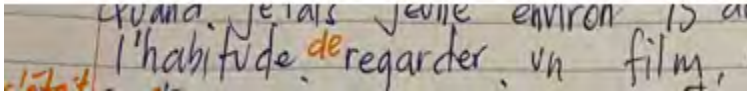 Quand. J'étais jeune environ 15 a
l'habitude. de regarder. un film,
c'était